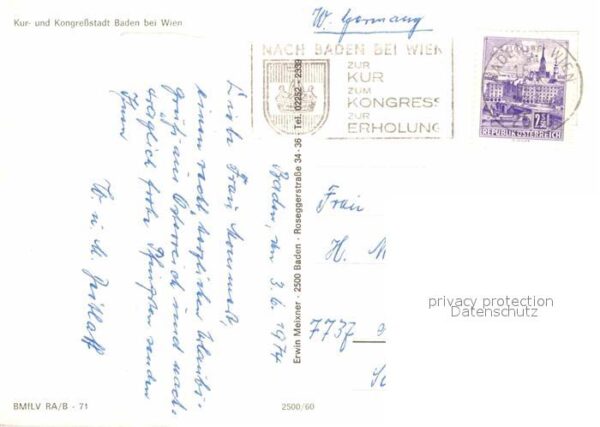 Kur- und Kongreßstadt Baden bei Wien
W. Germany
NACH BADEN BEI WIEN
ZUR
KUR
ZUM
KONGRESS
ZUR
ERHOLUNG
BADEN WIEN
2.50
REPUBLIK ÖSTERREICH
Baden, den 3.6.1974
Liebe Frau
einen recht herzlichen Urlaubs-
gruß aus Österreich und nach-
träglich frohe Pfingsten senden
Ihnen
W. u. M.
Erwin Meixner · 2500 Baden · Roseggerstraße 34 - 36 · Tel. 02252 - 2939
Frau
H. M
7737
privacy protection
Datenschutz
BMfLV RA/B - 71
2500/60